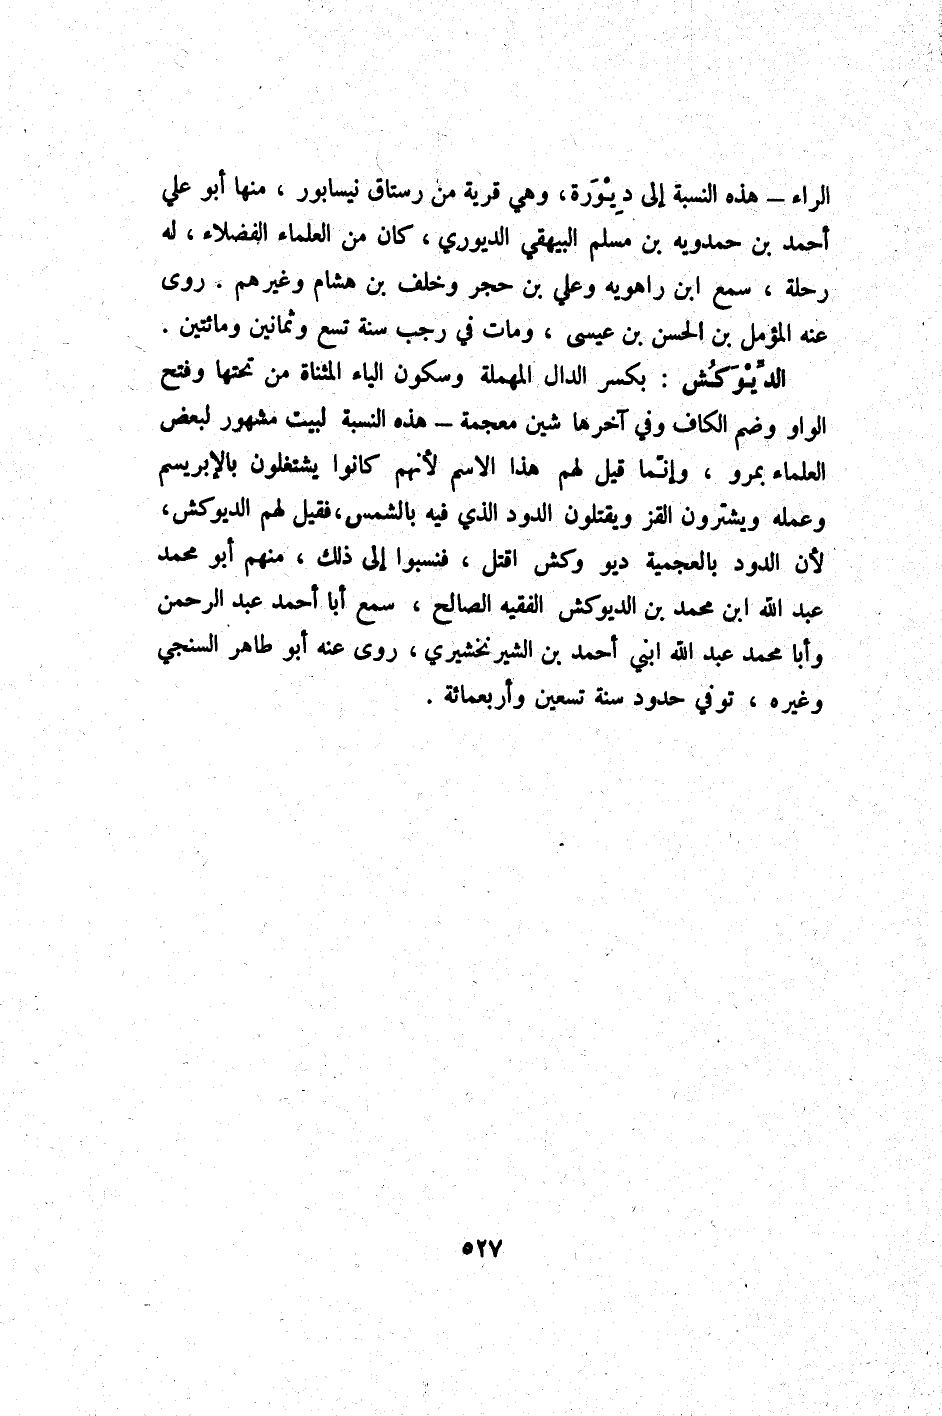 الراء – هذه النسبة إلى دِيْوَرة، وهي قرية من رستاق نيسابور ، منها أبو علي
أحمد بن حمدويه بن مسلم البيهقي الديوري ، كان من العلماء الفضلاء ، له
رحلة ، سمع ابن راهويه وعلي بن حجر وخلف بن هشام وغيرهم . روى
عنه المؤمل بن الحسن بن عيسى ، ومات في رجب سنة تسع وثمانين ومائتين .
الدِّيْوَكُش : بكسر الدال المهملة وسكون الياء المثناة من تحتها وفتح
الواو وضم الكاف وفي آخرها شين معجمة – هذه النسبة لبيت مشهور لبعض
العلماء بمرو ، وإنّما قيل لهم هذا الاسم لأنهم كانوا يشتغلون بالإبريسم
وعمله ويشترون القز ويقتلون الدود الذي فيه بالشمس،فقيل لهم الديوكش،
لأن الدود بالعجمية ديو وكش اقتل ، فنسبوا إلى ذلك ، منهم أبو محمد
عبد الله ابن محمد بن الديوكش الفقيه الصالح ، سمع أبا أحمد عبد الرحمن
وأبا محمد عبد الله ابني أحمد بن الشيرنخشيري ، روى عنه أبو طاهر السنجي
وغيره ، توفي حدود سنة تسعين وأربعمائة .
٥٢٧